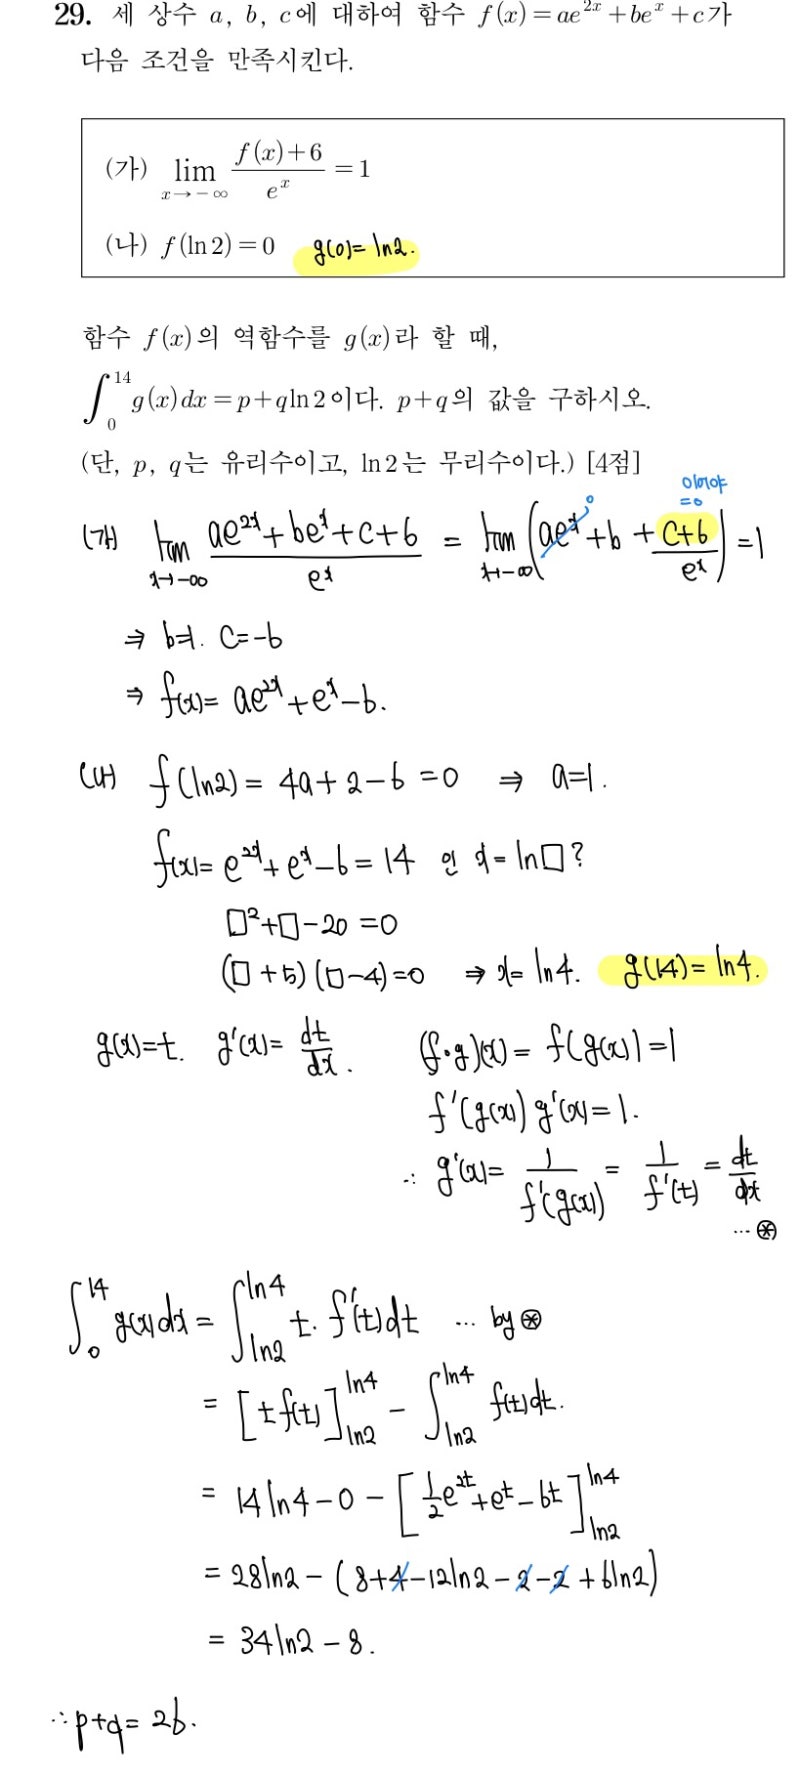 29. 세 상수 a, b, c에 대하여 함수 f(x)=ae^{2x}+be^x+c가
다음 조건을 만족시킨다.
(가) lim_{x→-∞} (f(x)+6)/e^x = 1
(나) f(ln2)=0 g(0)=ln2.
함수 f(x)의 역함수를 g(x)라 할 때,
∫_0^{14} g(x)dx=p+qln2이다. p+q의 값을 구하시오.
(단, p, q는 유리수이고, ln2는 무리수이다.) [4점]
이어야
=0
(가) lim_{x→-∞} (ae^{2x}+be^x+c+6)/e^x = lim_{x→-∞} (ae^x 0 +b+(c+6)/e^x) =1
⇒ b=1. c=-6
⇒ f(x)= ae^{2x}+e^x-6.
(나) f(ln2)= 4a+2-6=0 ⇒ a=1.
f(x)= e^{2x}+e^x-6=14 인 x=ln□?
□²+□-20=0
(□+5)(□-4)=0 ⇒ x= ln4. g(14)=ln4.
g(x)=t. g'(x)= dt/dx. (f∘g)(x)= f(g(x))=1
f'(g(x))g'(x)=1.
∴ g'(x)= 1/f'(g(x)) = 1/f'(t) = dt/dx
... ⊛
∫_0^{14} g(x)dx = ∫_{ln2}^{ln4} t·f'(t)dt ... by ⊛
= [tf(t)]_{ln2}^{ln4} - ∫_{ln2}^{ln4} f(t)dt.
= 14ln4-0-[1/2 e^{2t}+e^t-6t]_{ln2}^{ln4}
= 28ln2-(8+4-12ln2-2-2+6ln2)
= 34ln2-8.
∴ p+q= 26.